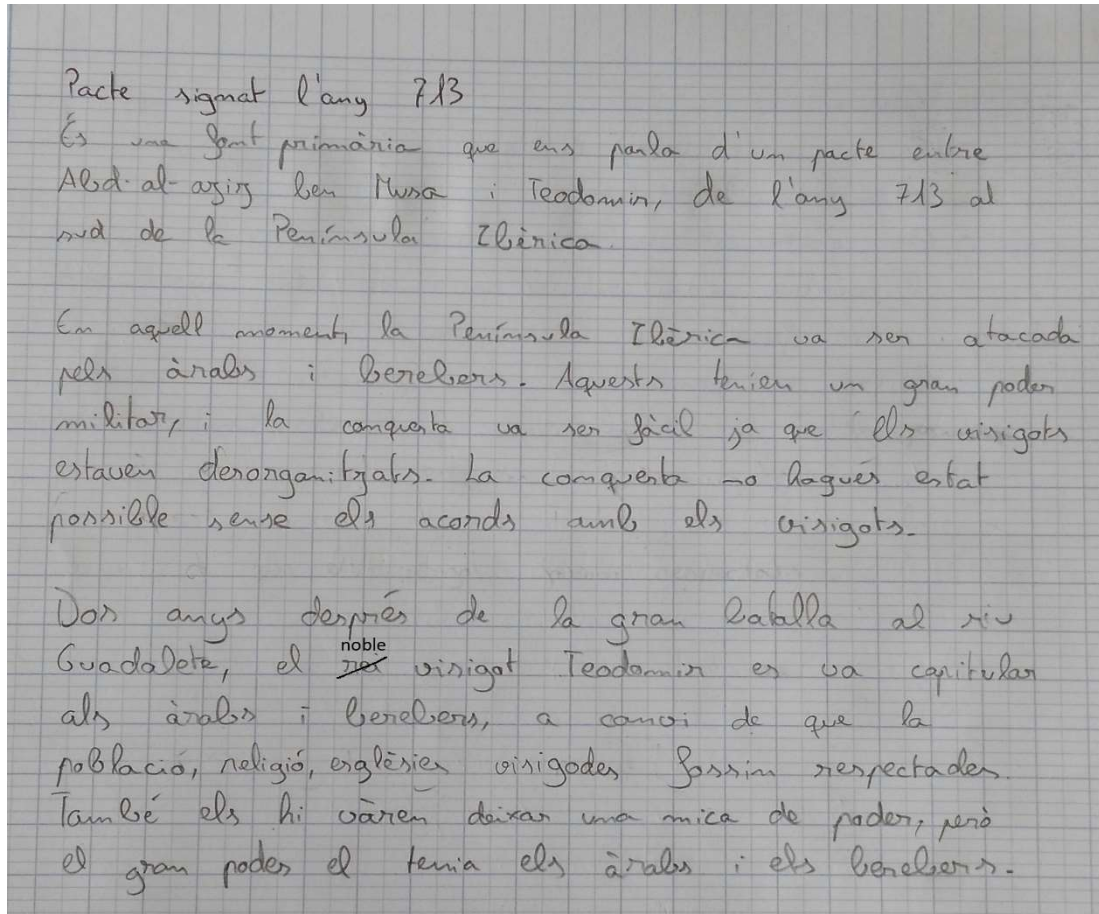 Pacte signat l'any 713
És una font primària que ens parla d'un pacte entre
Abd-al-aziz ben Musa i Teodomir, de l'any 713 al
sud de la Península Ibèrica.
En aquell moment, la Península Ibèrica va ser atacada
pels àrabs i berebers. Aquests tenien un gran poder
militar, i la conquesta va ser fàcil ja que els visigots
estaven desorganitzats. La conquesta no hagués estat
possible sense els acords amb els visigots.
Dos anys després de la gran batalla al riu
Guadalete, el rei noble visigot Teodomir es va capitular
als àrabs i berebers, a canvi de que la
població, religió, esglèsies visigodes fossin respectades.
També els hi vàren deixar una mica de poder, però
el gran poder el tenia els àrabs i els berebers.